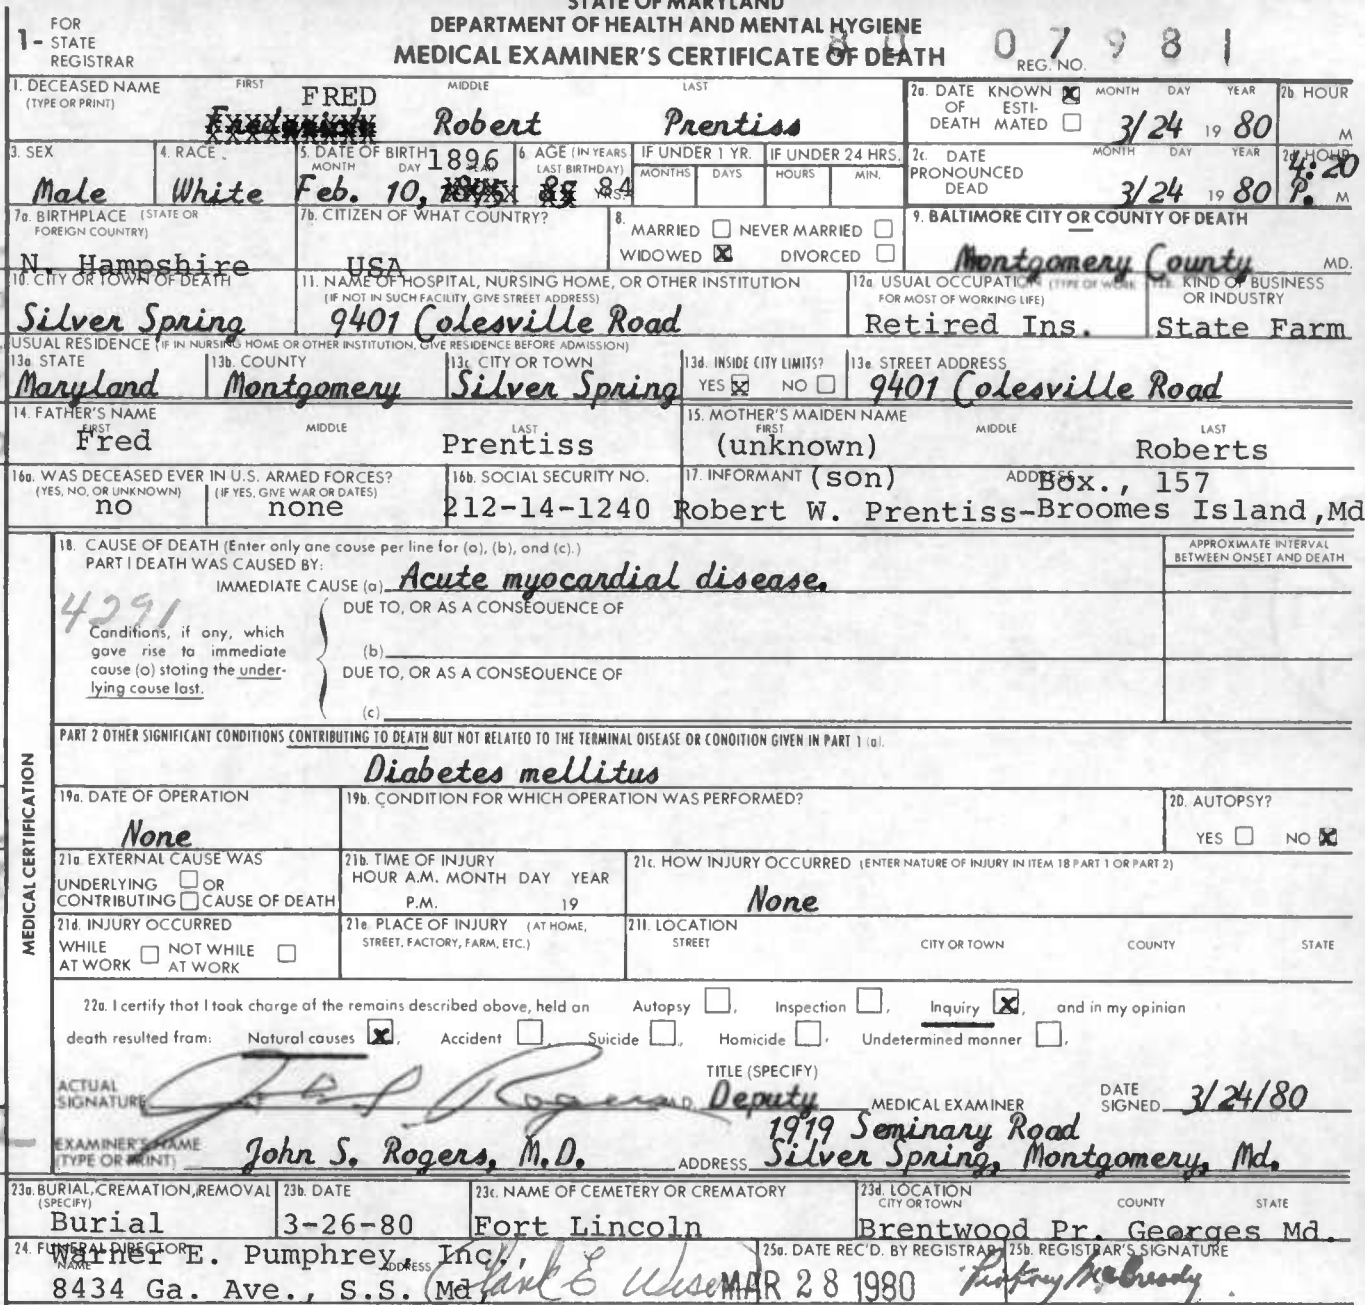 STATE OF MARYLAND
DEPARTMENT OF HEALTH AND MENTAL HYGIENE
MEDICAL EXAMINER'S CERTIFICATE OF DEATH
1- FOR STATE REGISTRAR
80 07981
REG. NO.
1. DECEASED NAME (TYPE OR PRINT) FIRST MIDDLE LAST
FRED Robert Prentiss
2a. DATE OF DEATH KNOWN [X] ESTIMATED [ ] MONTH DAY YEAR 3/24 19 80
2b. HOUR M
3. SEX Male
4. RACE White
5. DATE OF BIRTH MONTH DAY Feb. 10, 1896
6. AGE (IN YEARS LAST BIRTHDAY) 84 YRS.
IF UNDER 1 YR. MONTHS DAYS
IF UNDER 24 HRS. HOURS MIN.
2c. DATE PRONOUNCED DEAD MONTH DAY YEAR 3/24 19 80
2d. HOUR 4:20 P. M
7a. BIRTHPLACE (STATE OR FOREIGN COUNTRY) N. Hampshire
7b. CITIZEN OF WHAT COUNTRY? USA
8. MARRIED [ ] NEVER MARRIED [ ]
WIDOWED [X] DIVORCED [ ]
9. BALTIMORE CITY OR COUNTY OF DEATH
Montgomery County MD.
10. CITY OR TOWN OF DEATH Silver Spring
11. NAME OF HOSPITAL, NURSING HOME, OR OTHER INSTITUTION
(IF NOT IN SUCH FACILITY, GIVE STREET ADDRESS)
9401 Colesville Road
12a. USUAL OCCUPATION (TYPE OF WORK FOR MOST OF WORKING LIFE) Retired Ins.
KIND OF BUSINESS OR INDUSTRY State Farm
USUAL RESIDENCE (IF IN NURSING HOME OR OTHER INSTITUTION, GIVE RESIDENCE BEFORE ADMISSION)
13a. STATE Maryland
13b. COUNTY Montgomery
13c. CITY OR TOWN Silver Spring
13d. INSIDE CITY LIMITS? YES [X] NO [ ]
13e. STREET ADDRESS 9401 Colesville Road
14. FATHER'S NAME FIRST MIDDLE LAST
Fred Prentiss
15. MOTHER'S MAIDEN NAME FIRST MIDDLE LAST
(unknown) Roberts
16a. WAS DECEASED EVER IN U.S. ARMED FORCES?
(YES, NO, OR UNKNOWN) no (IF YES, GIVE WAR OR DATES) none
16b. SOCIAL SECURITY NO. 212-14-1240
17. INFORMANT (son) ADDRESS Box., 157
Robert W. Prentiss-Broomes Island,Md
MEDICAL CERTIFICATION
18. CAUSE OF DEATH (Enter only one cause per line for (a), (b), and (c).)
PART I DEATH WAS CAUSED BY:
APPROXIMATE INTERVAL BETWEEN ONSET AND DEATH
IMMEDIATE CAUSE (a) Acute myocardial disease.
4291
DUE TO, OR AS A CONSEQUENCE OF
Conditions, if any, which gave rise to immediate cause (a) stating the underlying cause last.
(b)
DUE TO, OR AS A CONSEQUENCE OF
(c)
PART 2 OTHER SIGNIFICANT CONDITIONS CONTRIBUTING TO DEATH BUT NOT RELATED TO THE TERMINAL DISEASE OR CONDITION GIVEN IN PART 1 (a).
Diabetes mellitus
19a. DATE OF OPERATION None
19b. CONDITION FOR WHICH OPERATION WAS PERFORMED?
20. AUTOPSY? YES [ ] NO [X]
21a. EXTERNAL CAUSE WAS
UNDERLYING [ ] OR
CONTRIBUTING [ ] CAUSE OF DEATH
21b. TIME OF INJURY
HOUR A.M. MONTH DAY YEAR
P.M. 19
21c. HOW INJURY OCCURRED (ENTER NATURE OF INJURY IN ITEM 18 PART 1 OR PART 2)
None
21d. INJURY OCCURRED
WHILE AT WORK [ ] NOT WHILE AT WORK [ ]
21e. PLACE OF INJURY (AT HOME, STREET, FACTORY, FARM, ETC.)
21f. LOCATION STREET CITY OR TOWN COUNTY STATE
22a. I certify that I took charge of the remains described above, held an Autopsy [ ], Inspection [ ], Inquiry [X], and in my opinion
death resulted from: Natural causes [X], Accident [ ], Suicide [ ], Homicide [ ], Undetermined manner [ ],
TITLE (SPECIFY)
ACTUAL SIGNATURE John S Rogers M.D. Deputy MEDICAL EXAMINER DATE SIGNED 3/24/80
1919 Seminary Road
EXAMINER'S NAME (TYPE OR PRINT) John S. Rogers, M.D. ADDRESS Silver Spring, Montgomery, Md.
23a. BURIAL, CREMATION, REMOVAL (SPECIFY) Burial
23b. DATE 3-26-80
23c. NAME OF CEMETERY OR CREMATORY Fort Lincoln
23d. LOCATION CITY OR TOWN COUNTY STATE
Brentwood Pr. Georges Md.
24. FUNERAL DIRECTOR NAME ADDRESS
Warner E. Pumphrey, Inc.,
8434 Ga. Ave., S.S. Md
25a. DATE REC'D. BY REGISTRAR MAR 28 1980
25b. REGISTRAR'S SIGNATURE